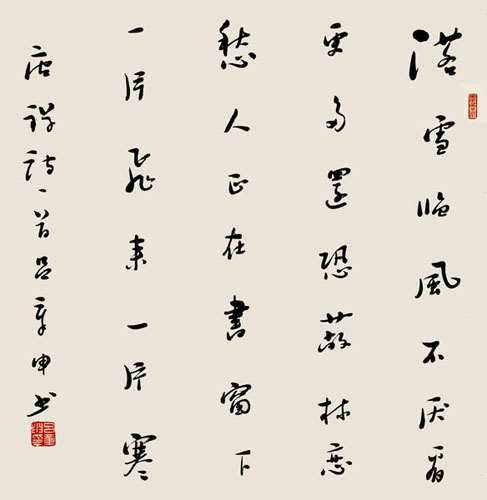 落雪临风不厌看
更多還恐蔽林峦
愁人正在書窗下
一片飛来一片寒
唐禅诗一首吕章申书